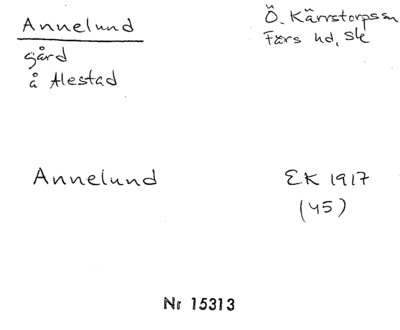 Annelund
Ö. Kärrstorps sn
Färs hd, Sk
gård
å Alestad
Annelund
EK 1917
(45)
Nr 15313